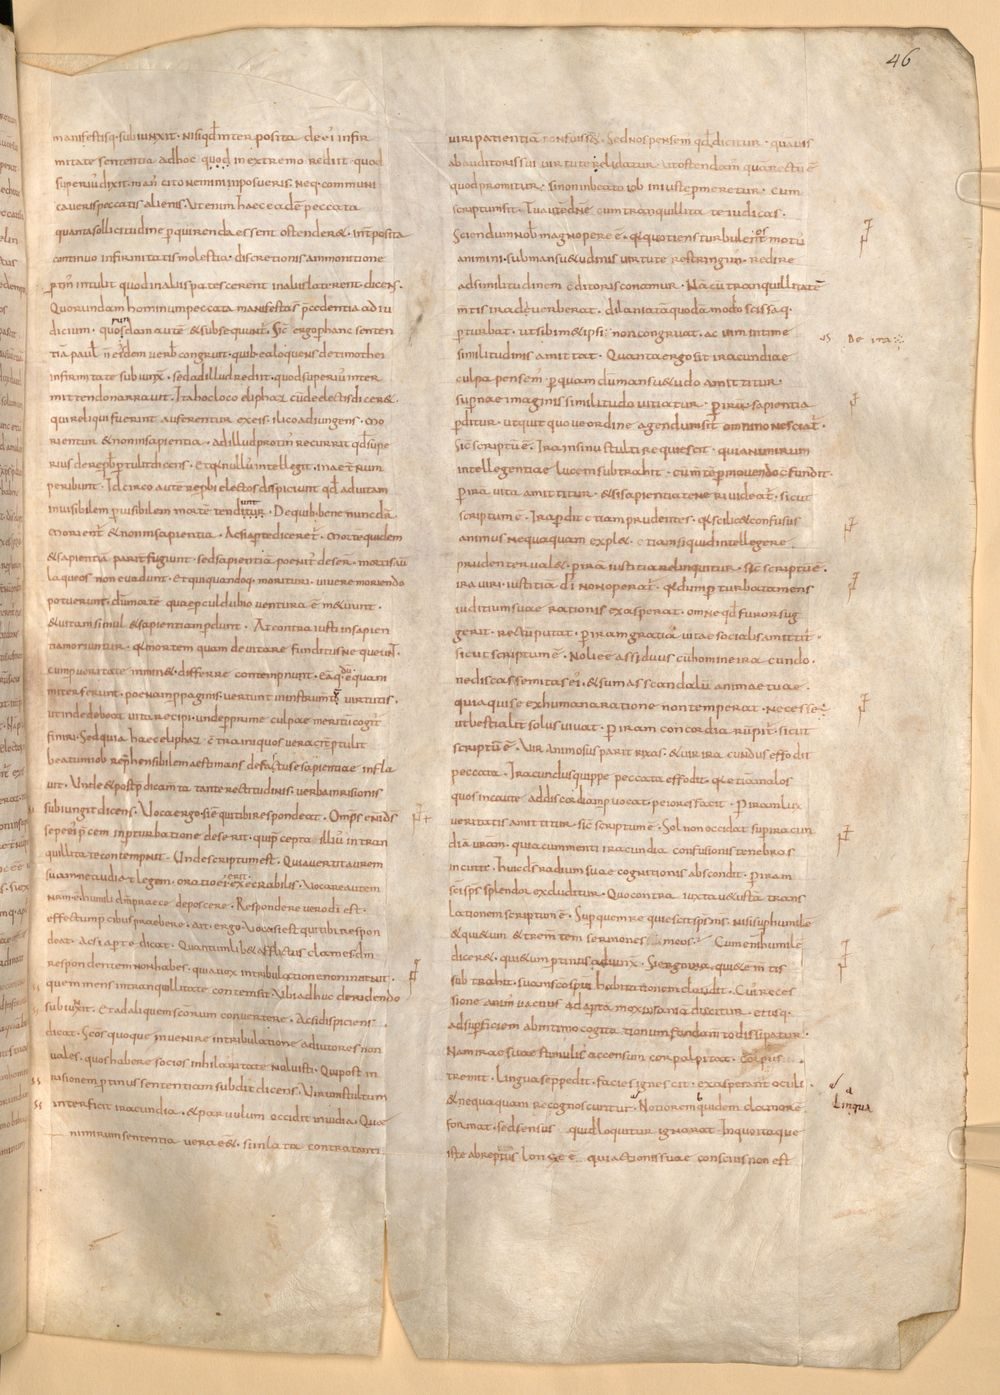 46
manifestisq· subiunxit· nisi qd inter posita de ei infir
mitate sententia adhoc quod in extremo rediit quod
superiu dixit· man cito nemini inposueris· neq· communi
caveris peccatis alienis· Ut enim haec eade peccata
quanta sollicitudine pquirenda essent ostender&· int posita
continuo infirmitatis molestia· discretionis ammonitione
ptin intulit quod in aliis patescerent in aliis laterent· dicens·
Quorundam hominum peccata manifesta s pcedentia ad iu
dicium· quosdam aute & subsequunt· Sic ergo phanc senten
tia paul n eisdem verb congruit· quib ea loquens de timothei
infirmitate subiunx· sed ad illud rediit· quod superiu inter
mittendo narravit· Ita hoc loco eliphaz cu de electis dicer&·
qui reliqui fuerint auferentur ex eis· ilico adiungens· mo
rientur & non in sapientia· ad illud protin recurrit qd supe
rius de reprob ptulit dicens· Et qa nullus intellegit· in aetnum
peribunt· Idcirco aute reprobi electos dispiciunt qd ad vitam
invisibilem p visibilem morte tenditur· De quib· bene nunc dr·
morient & non in sapientia· Ac si apte diceret· morte quidem
& sapientia parit fugiunt· sed sapientia penit deser· mortis au
laqueos non evadunt· Et qui quandoq· morituri· vivere moriendo
potuerunt· du morte quae pcul dubio ventura e metuunt·
& vitam simul & sapientiam pdunt· At contra iusti in sapien
tia moriuntur· qa mortem quam devitare funditus nequeunt·
cum p veritate inmin&· differre contempnunt·
mites ferunt· poenam ppaginis· vertunt in instrum virtutis·
ut inde debeat vita recipi· unde pprime culpae merito cogit
finiri· Sed quia haec eliphaz contra iniquos veracit ptulit
beatum iob reprehensibilem aestimans de fastu se sapientiae infla
vit· Unde & post pdicam tante rectitudinis· verba inrisionis
subiungit dicens· Voca ergo si e qui tibi respondeat· Omps eni ds
sepe ei pcem in pturbatione deserit· qui pcepta illius in tran
quillitate contempnit· Unde scriptum est· Qui avertit aurem
suam ne audiat legem· oratio ei erit execrabilis· Vocare autem
nrm e humili dm prece deposcere· Respondere vero di est·
effectum pcibus praebere· Ait ergo· Voca si est qui tibi respon
deat· Ac si apte dicat· Quantumlib& afflictus clames dm
respondentem non habes· quia vox in tribulatione non invenit·
quem mens in tranquillitate contempsit Ubi adhuc deridendo
subiunxit· Et ad aliquem scorum convertere· Ac si dispiciens
dicat· Scos quoque invenire in tribulatione adiutores non
vales· quos habere socios in hilaritate noluisti· Qui post in
risionem ptinus sententiam subdit dicens· Virum stultum
interficit iracundia· & parvulum occidit invidia· Quae
nimirum sententia vera e&· si inlata contra tanti
viri patientia non fuiss&· Sed nos pensem qd dicitur· quavis
ab auditoris sui virtute relidatur· ut ostendam quam rectu e
quod promitur· si non in beato iob iniuste pmeretur· Cum
scriptum sit· Tu aute dne cum tranquillitate iudicas·
Sciendum nob magnopere e· qa quotiens turbulentos motu
animi· sub mansu&udinis virtute restringim· redire
ad similitudinem conditoris conamur· Na cu tranquillitate
mtis ira diverberat· dilaniata quodammodo scissaq·
pturbat· ut sibim&ipsi non congruat· ac vim intime
similitudinis amittat· Quanta ergo sit iracundiae
culpa pensem· p quam du mansu&udo amittitur·
supnae imaginis similitudo vitiatur· p ira sapientia
pditur· ut quit quove ordine agendum sit omnino nesciat·
Sic scriptu e· Ira in sinu stulti requiescit· quia nimirum
intellegentiae lucem subtrahit· cum mte pmovendo cfundit·
p ira vita amittitur· & si sapientia teneri videat· sicut
scriptum e· Ira pdit etiam prudentes· qa scilic& confusus
animus nequaquam expl&· etiam siquid intellegere
prudenter val&· p ira iustitia relinquitur· sic scriptu e·
ira viri iustitia di non operat· qa dum pturbata mens
iuditium suae rationis exasperat· omne qd furor sug
gerit· rectu putat· p iram gratia vitae socialis amittit·
sicut scriptum e· Noli ee assiduus cu homine iracundo·
ne discas semitas ei· & sumas scandalu animae tuae·
quia qui se ex humana ratione non temperat· necesse e
ut bestialit solus vivat· p iram concordia rumpit· sicut
scriptu e· Vir animosus parit rixas· & vir iracundus effodit
peccata· Iracundus quippe peccata effodit· qa etia malos
quos incaute ad discordiam pvocat· peiores facit· p iram lux
veritatis amittitur· sic scriptum e· Sol non occidat sup iracun
diam vram· quia cum menti iracundia confusionis tenebras
incutit· huic ds radium suae cognitionis abscondit· p iram
sci sps splendor excluditur· Quo contra iuxta v&usta trans
lationem scriptum e· Sup quem requiescit sps ms· nisi sup humile
& qui&um & trementem sermones meos· Cum enim humile
dicer&· qui&um ptinus adiunx· Si ergo ira qui& mtis
subtrahit· suam sco spui habitationem claudit· Cui reces
sione anim vacuus ad apta mox insania ducitur· etisq·
ad supficiem ab intimo cogitationum fundamto dissipatur·
Nam irae suae stimulis accensum cor palpitat· corpus
tremit· lingua se ppedit· facies ignescit· exasperant oculi·
& nequaquam recognoscuntur· Notiorem quidem clamore
format· sed sensus quid loquitur ignorat· In quo itaque
iste abrepticius longe e qui actionis suae conscius non est
De ira
Lingua